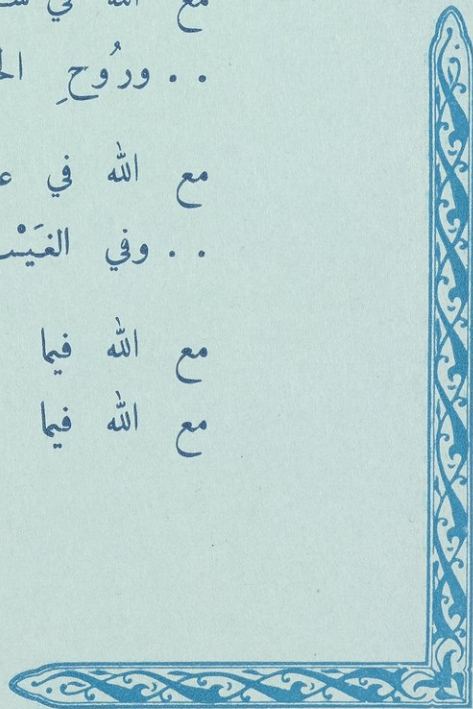 مع الله في
. . ورُوحِ
مع الله في
. . وفي
مع الله فيما
مع الله فيما